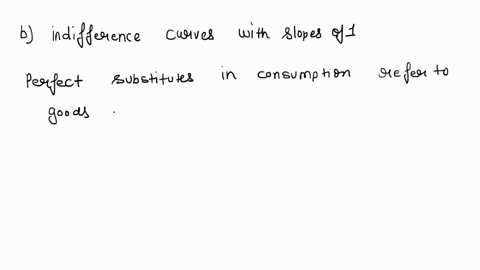 b) indifference curves with slopes of 1
Perfect substitutes in consumption refer to
goods